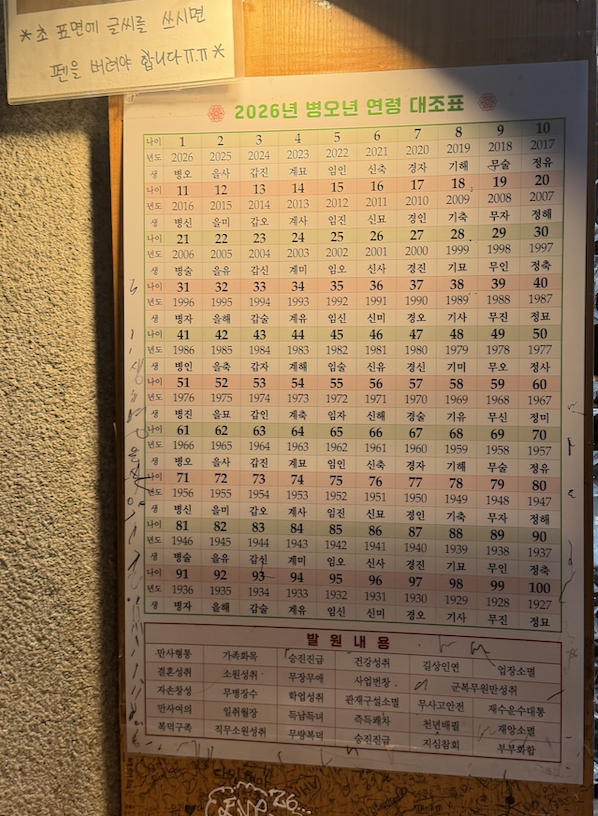 *초 표면에 글씨를 쓰시면
펜을 버려야 합니다ㅠ.ㅠ*
2026년 병오년 연령 대조표
나이 1 2 3 4 5 6 7 8 9 10
년도 2026 2025 2024 2023 2022 2021 2020 2019 2018 2017
생 병오 을사 갑진 계묘 임인 신축 경자 기해 무술 정유
나이 11 12 13 14 15 16 17 18 19 20
년도 2016 2015 2014 2013 2012 2011 2010 2009 2008 2007
생 병신 을미 갑오 계사 임진 신묘 경인 기축 무자 정해
나이 21 22 23 24 25 26 27 28 29 30
년도 2006 2005 2004 2003 2002 2001 2000 1999 1998 1997
생 병술 을유 갑신 계미 임오 신사 경진 기묘 무인 정축
나이 31 32 33 34 35 36 37 38 39 40
년도 1996 1995 1994 1993 1992 1991 1990 1989 1988 1987
생 병자 을해 갑술 계유 임신 신미 경오 기사 무진 정묘
나이 41 42 43 44 45 46 47 48 49 50
년도 1986 1985 1984 1983 1982 1981 1980 1979 1978 1977
생 병인 을축 갑자 계해 임술 신유 경신 기미 무오 정사
나이 51 52 53 54 55 56 57 58 59 60
년도 1976 1975 1974 1973 1972 1971 1970 1969 1968 1967
생 병진 을묘 갑인 계축 임자 신해 경술 기유 무신 정미
나이 61 62 63 64 65 66 67 68 69 70
년도 1966 1965 1964 1963 1962 1961 1960 1959 1958 1957
생 병오 을사 갑진 계묘 임인 신축 경자 기해 무술 정유
나이 71 72 73 74 75 76 77 78 79 80
년도 1956 1955 1954 1953 1952 1951 1950 1949 1948 1947
생 병신 을미 갑오 계사 임진 신묘 경인 기축 무자 정해
나이 81 82 83 84 85 86 87 88 89 90
년도 1946 1945 1944 1943 1942 1941 1940 1939 1938 1937
생 병술 을유 갑신 계미 임오 신사 경진 기묘 무인 정축
나이 91 92 93 94 95 96 97 98 99 100
년도 1936 1935 1934 1933 1932 1931 1930 1929 1928 1927
생 병자 을해 갑술 계유 임신 신미 경오 기사 무진 정묘
발원내용
만사형통 가족화목 승진진급 건강성취 길상인연 업장소멸
결혼성취 소원성취 무장무애 사업번창 군복무원만성취
자손창성 무병장수 학업성취 관재구설소멸 무사고안전 재수운수대통
만사여의 일취월장 득남득녀 즉득쾌차 천년배필 재앙소멸
복덕구족 직무소원성취 무량복덕 승진진급 지심참회 부부화합